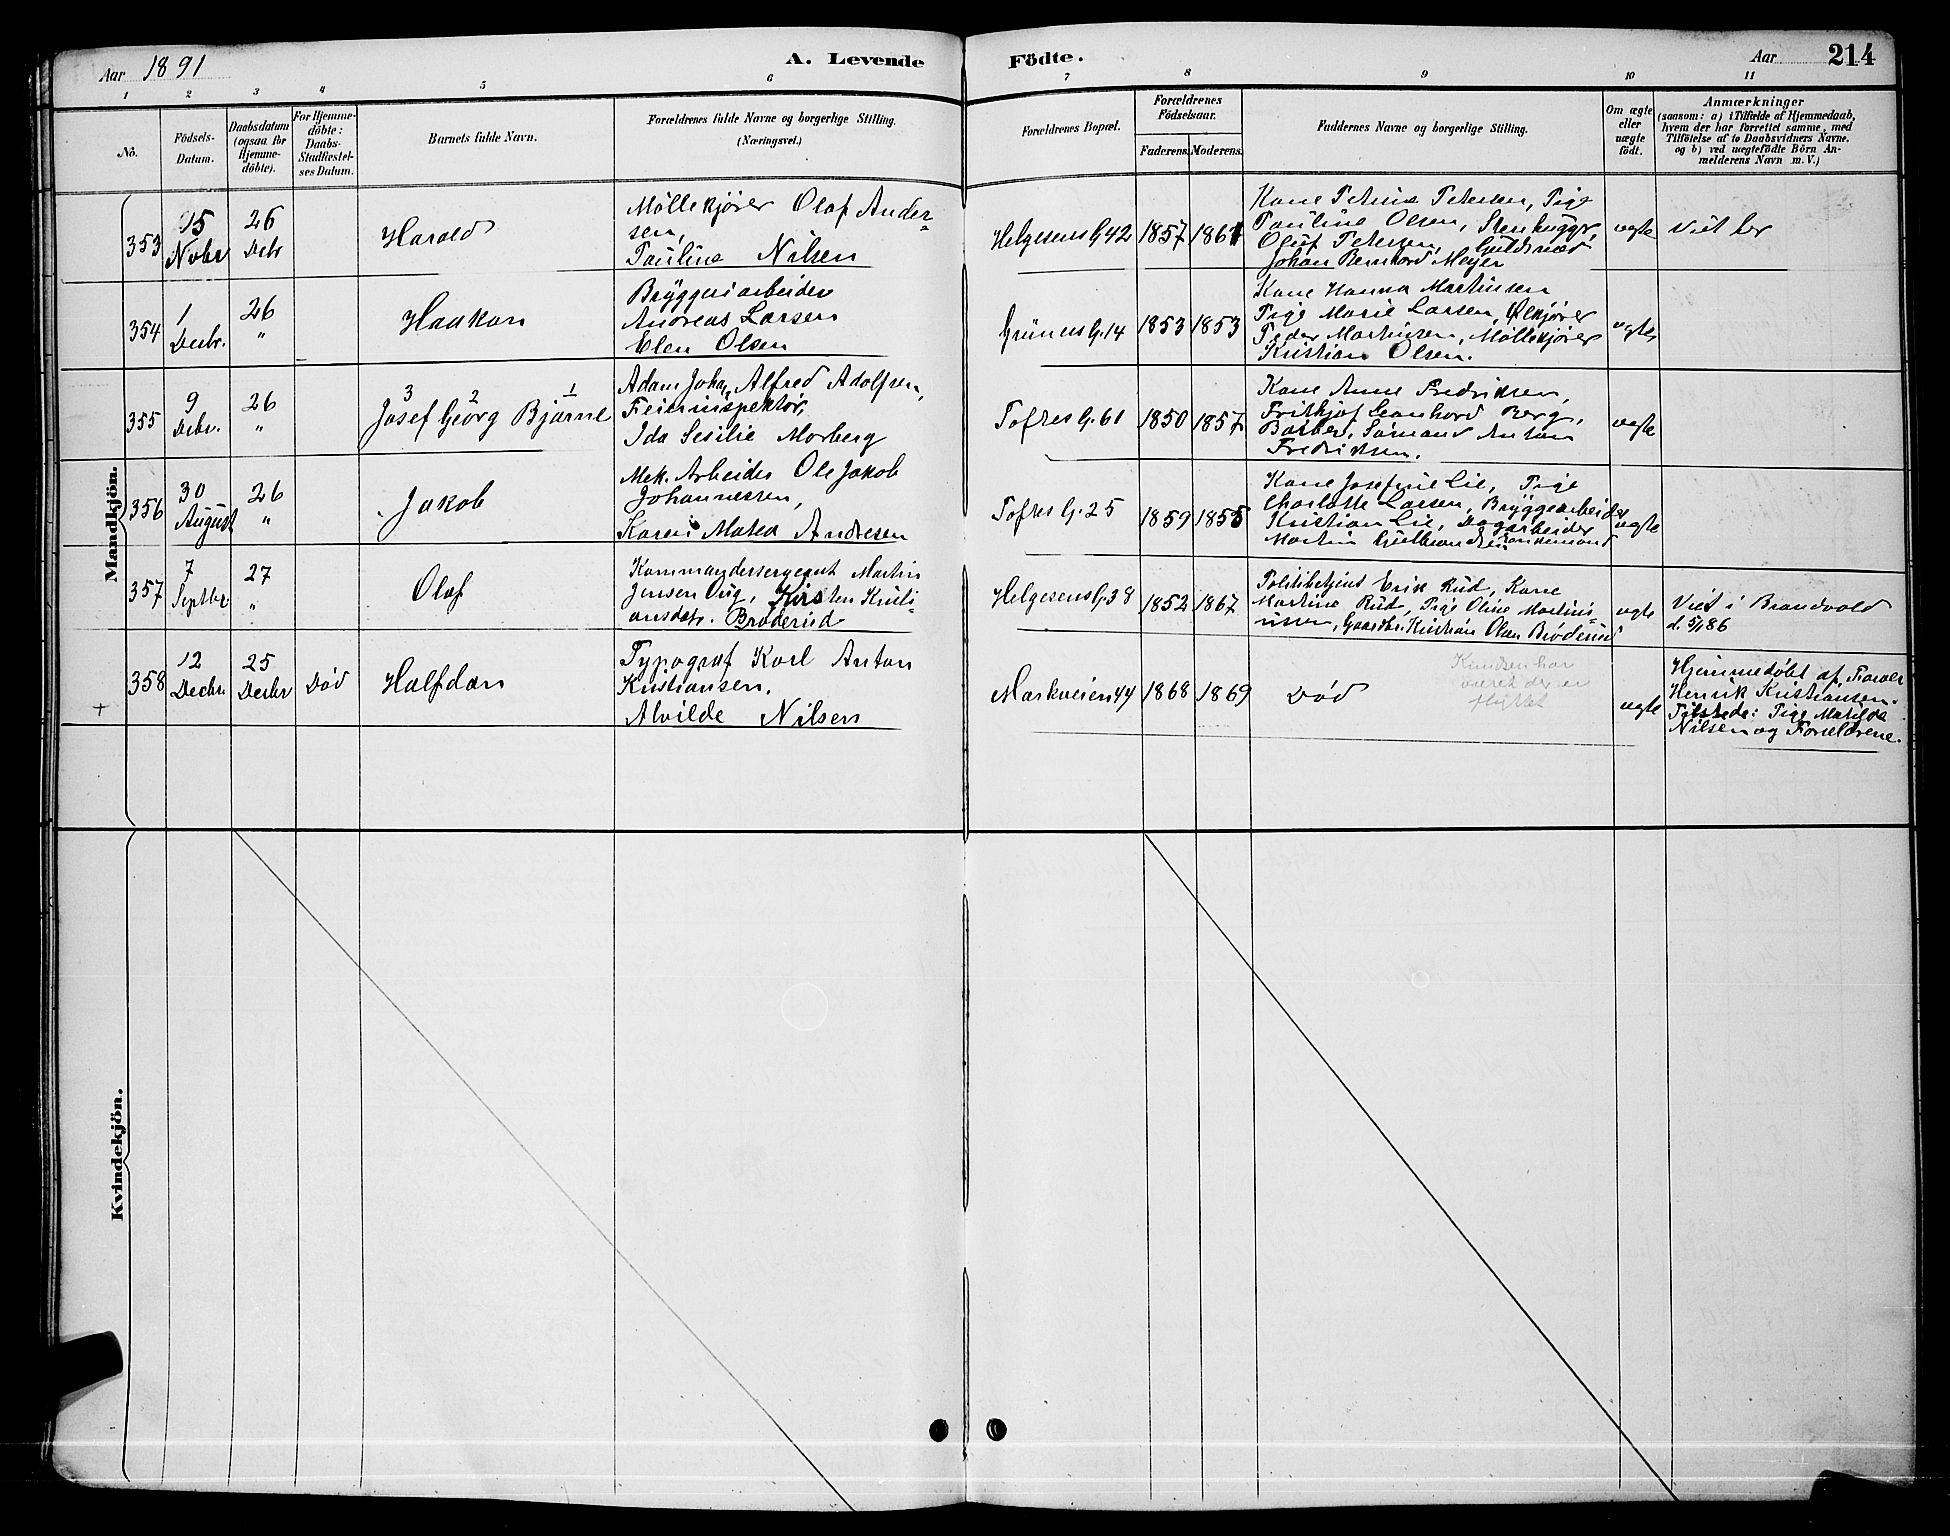 Aar 1891
A. Levende Födte.
Aar 214
1 2 3 4 5 6 7 8 9 10 11
No.
Födsels-
Datum.
Daabsdatum
(ogsaa for
Hjemme-
döbte).
For Hjemme-
döbte:
Daabs-
Stadfæstel-
ses Datum.
Barnets fulde Navn.
Forældrenes fulde Navne og borgerlige Stilling.
(Næringsvei.)
Forældrenes Bopæl.
Forældrenes
Födselsaar.
Faderens. Moderens.
Faddernes Navne og borgerlige Stilling.
Om ægte
eller
uægte
födt.
Anmærkninger
(saasom: a) i Tilfælde af Hjemmedaab,
hvem der har forrettet samme, med
Tilföielse af to Daabsvidners Navne,
og b) ved uægtefödte Börn An-
melderens Navn m. V.)
Mandkjön.
353
15
Novbr
26
Debr
Harald
Møllekjører Olaf Ander-
sen,
Pauline Nilsen
Helgesens G. 42
1857 1861
Kone Petrine Petersen, Pige
Pauline Olsen, Stenhugger
Oluf Petersen, Guldsmed
Johan Bernhard Meyer
ægte
Viet her
354
1
Decbr.
26
"
Haakon
Bryggeriarbeider
Andreas Larsen
Elen Olsen
Grüners G. 14
1853 1853
Kone Hanna Martinsen
Pige Marie Larsen, Ølkjører
Peder Martinsen, Møllekjører
Kristian Olsen.
ægte
355
9
Decbr.
26
"
3 2 1
Josef Georg Bjarne
Adam Joha, Alfred Adolfsen,
Feierinspektør,
Ida Sesilie Morberg
Toftes G. 61
1850 1857
Kone Anne Fredriksen,
Frithjof Leonhard Berg,
Barber, Sømand Anton
Fredriksen.
ægte
356
30
August
26
"
Jakob
Mek. Arbeider Ole Jakob
Johannessen,
Karen Matea Andresen
Toftes G. 25
1859 1855
Kone Josefine Lie, Pige
Charlotte Larsen, Bryggearbeider
Kristian Lie, Dagarbeider
Martin
ægte
357
7
Septbr
27
"
Olaf
Kommandersergeant Martin
Jensen Ørig, Kirsten Kristi-
ansdatr. Brøderud
Helgesens G. 38
1852 1867
Politibetjent Erik Rud, Kone
Martine Rud, Pige Oline Martini-
ussen, Gaardbr. Kristian Olsen Brøderud
ægte
Viet i Brandvold
d. 5/1 86
358
+
12
Decbr.
25
Decbr
Død
Halfdan
Typograf Karl Anton
Kristiansen,
Alvilde Nilsen
Markveien 44
1868 1869
Død
Knudsen har
været der er
flyttet
ægte
Hjemmedøbt af
Henrik Kristiansen.
Tilstede: Pige Matilde
Nilsen og Forældrene.
Kvindekjön.